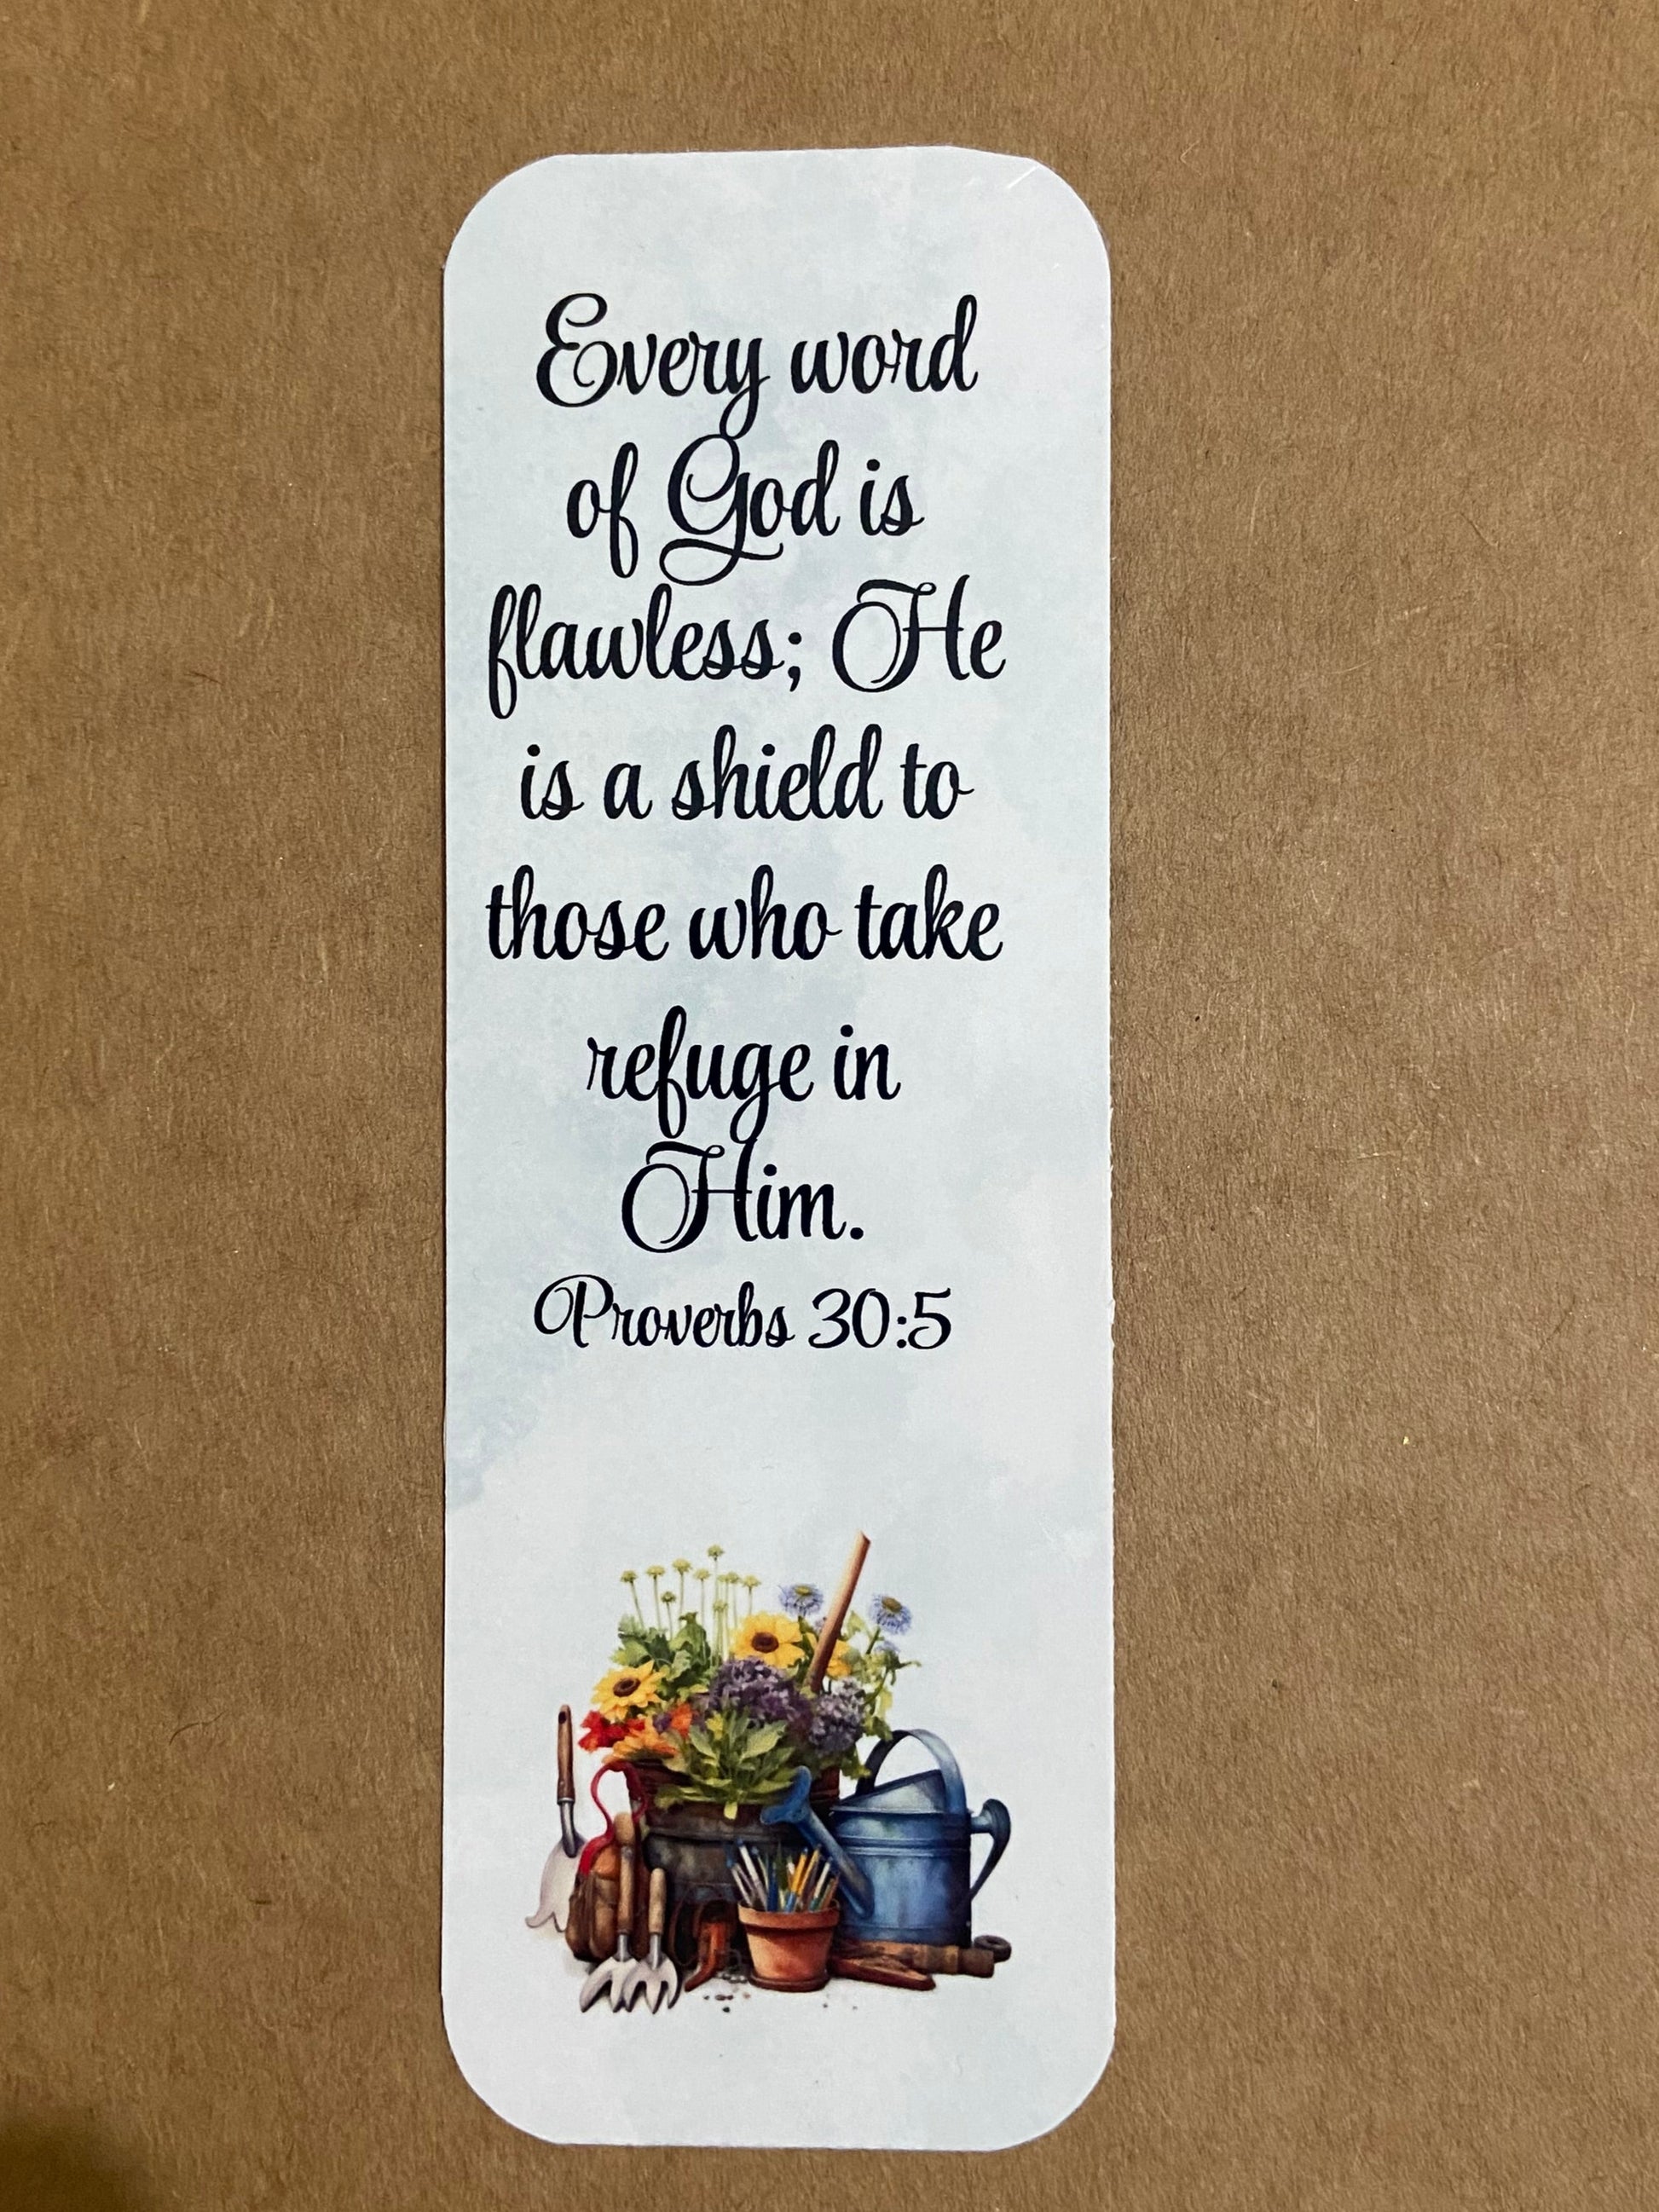 Every word
of God is
flawless; He
is a shield to
those who take
refuge in
Him.
Proverbs 30:5